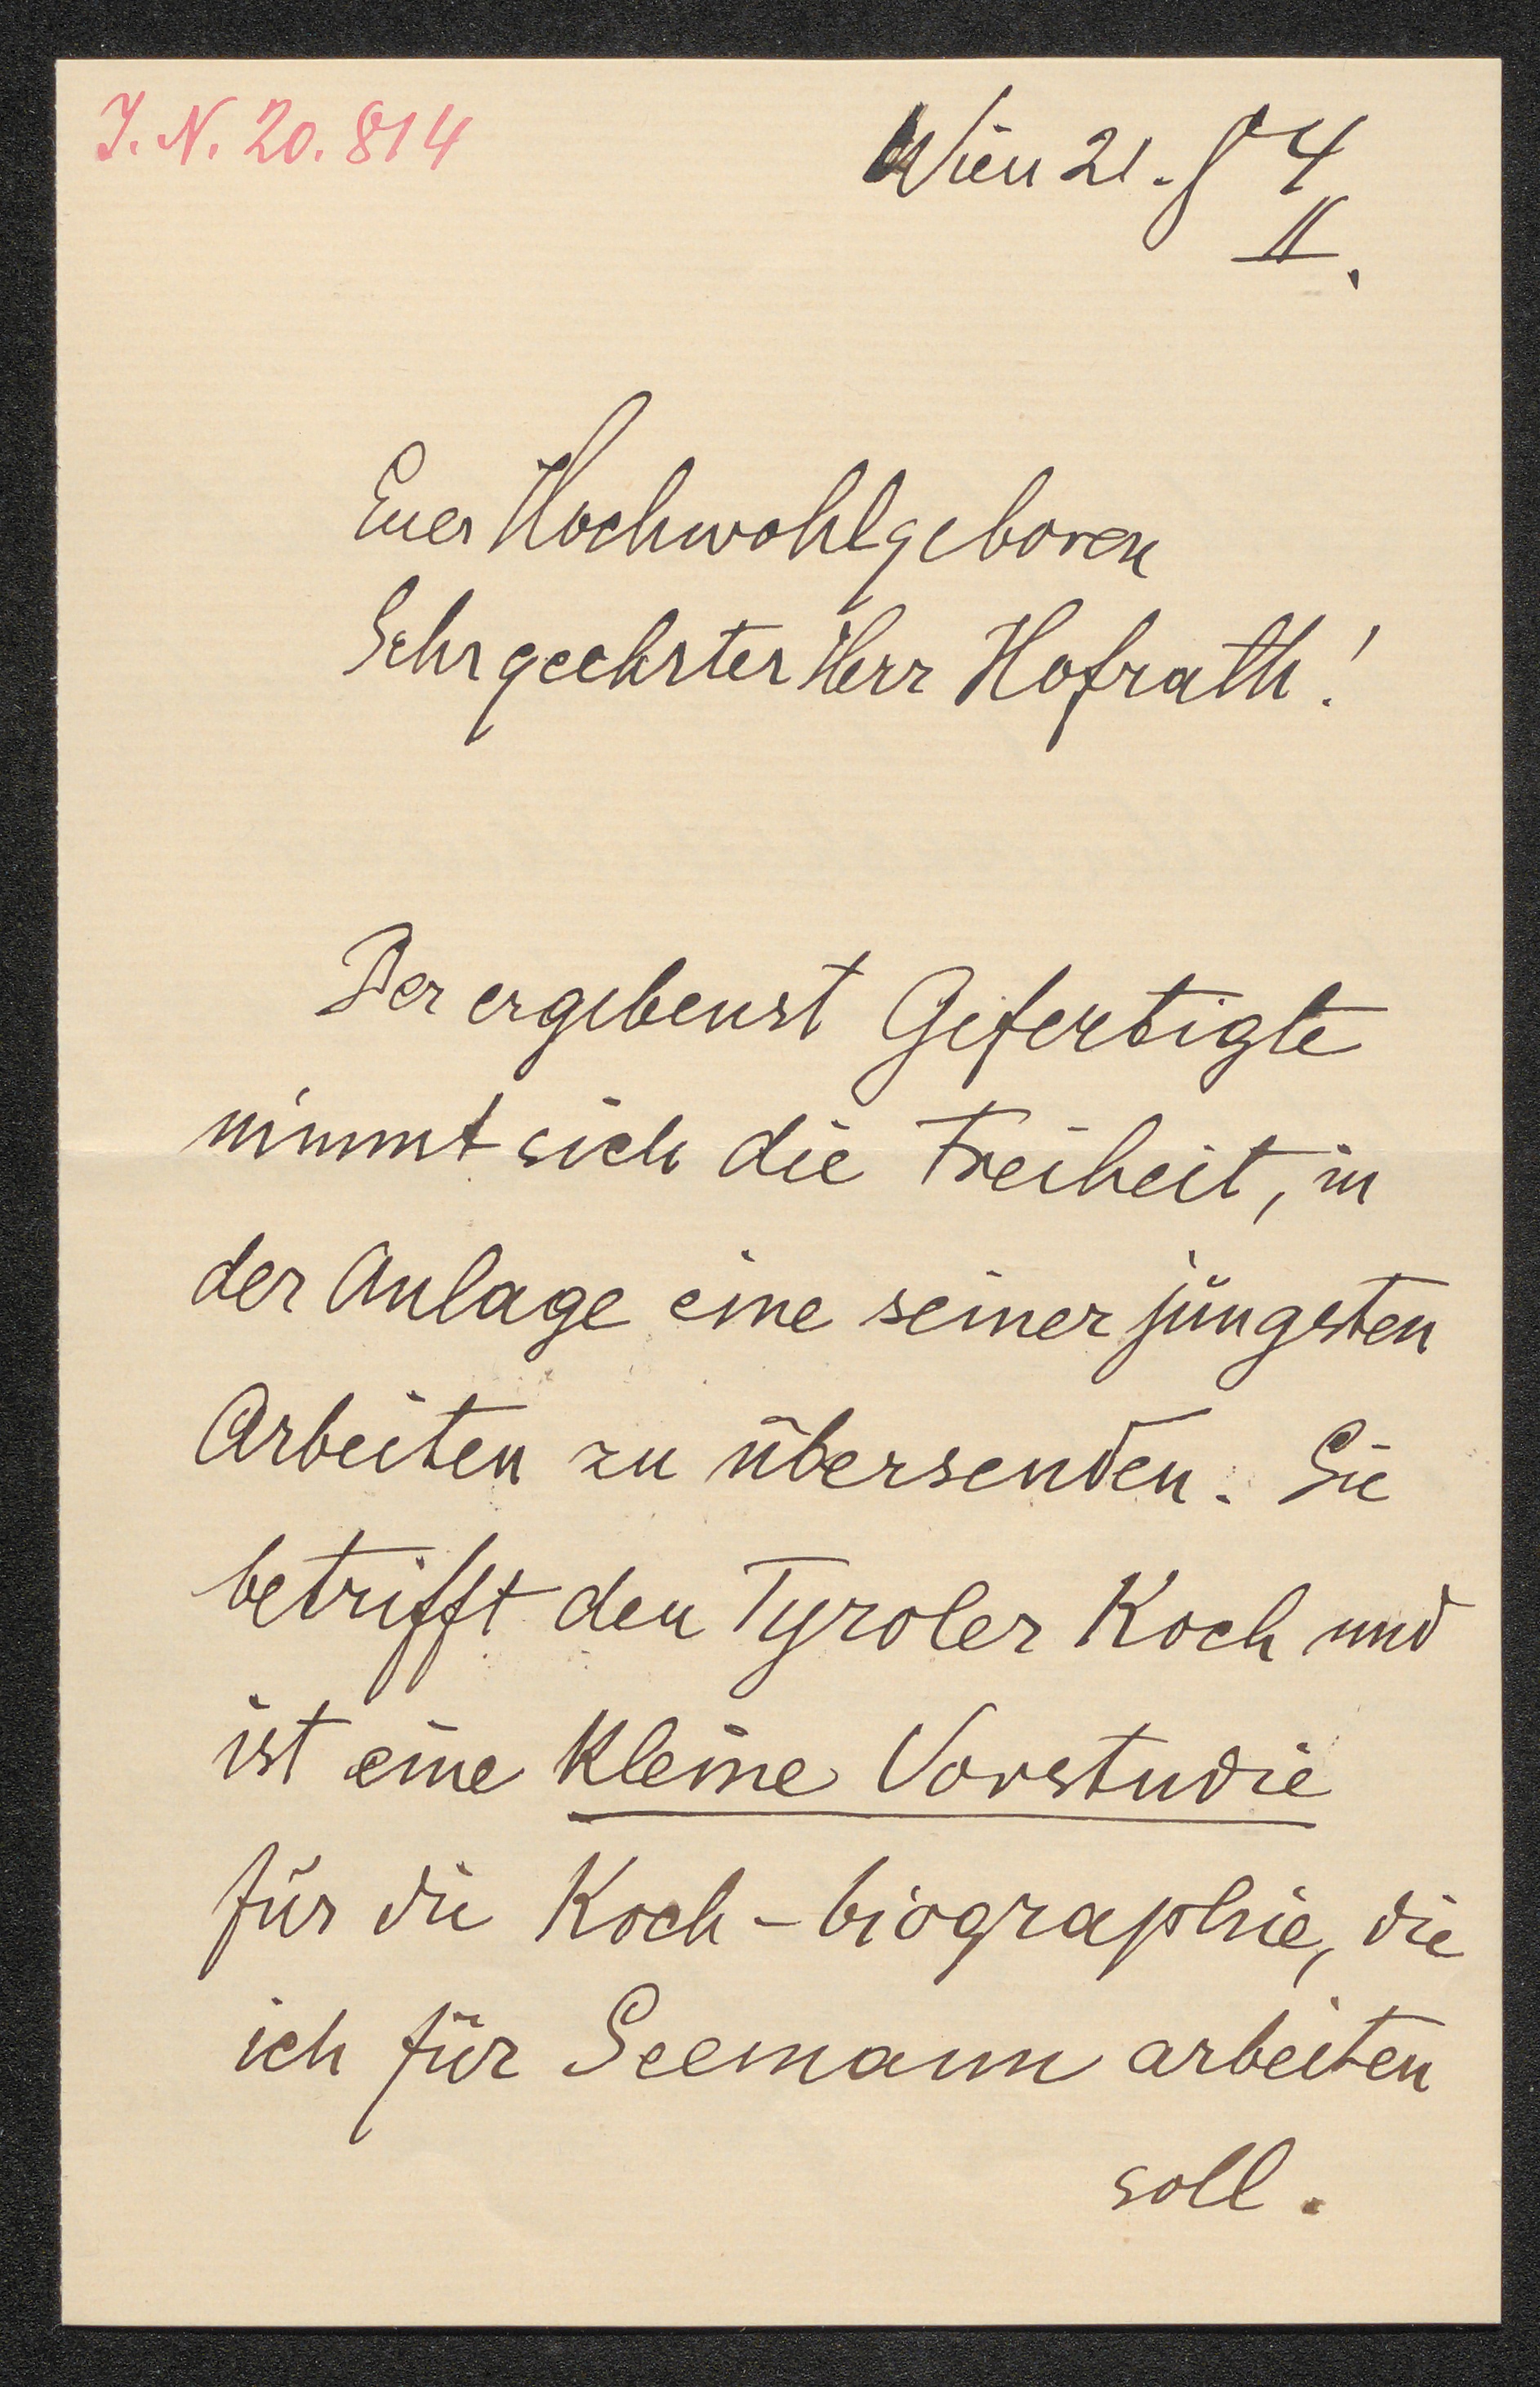 J. N. 20.814
Wien 21. 84
II.
Euer Hochwohlgeboren
Sehr geehrter Herr Hofrath!
Der ergebenst Gefertigte
nimmt sich die Freiheit, in
der Anlage eine seiner jüngsten
Arbeiten zu übersenden. Sie
betrifft den Tyroler Koch und
ist eine kleine Vorstudie
für die Koch-biographie, die
ich für Seemann arbeiten
soll.